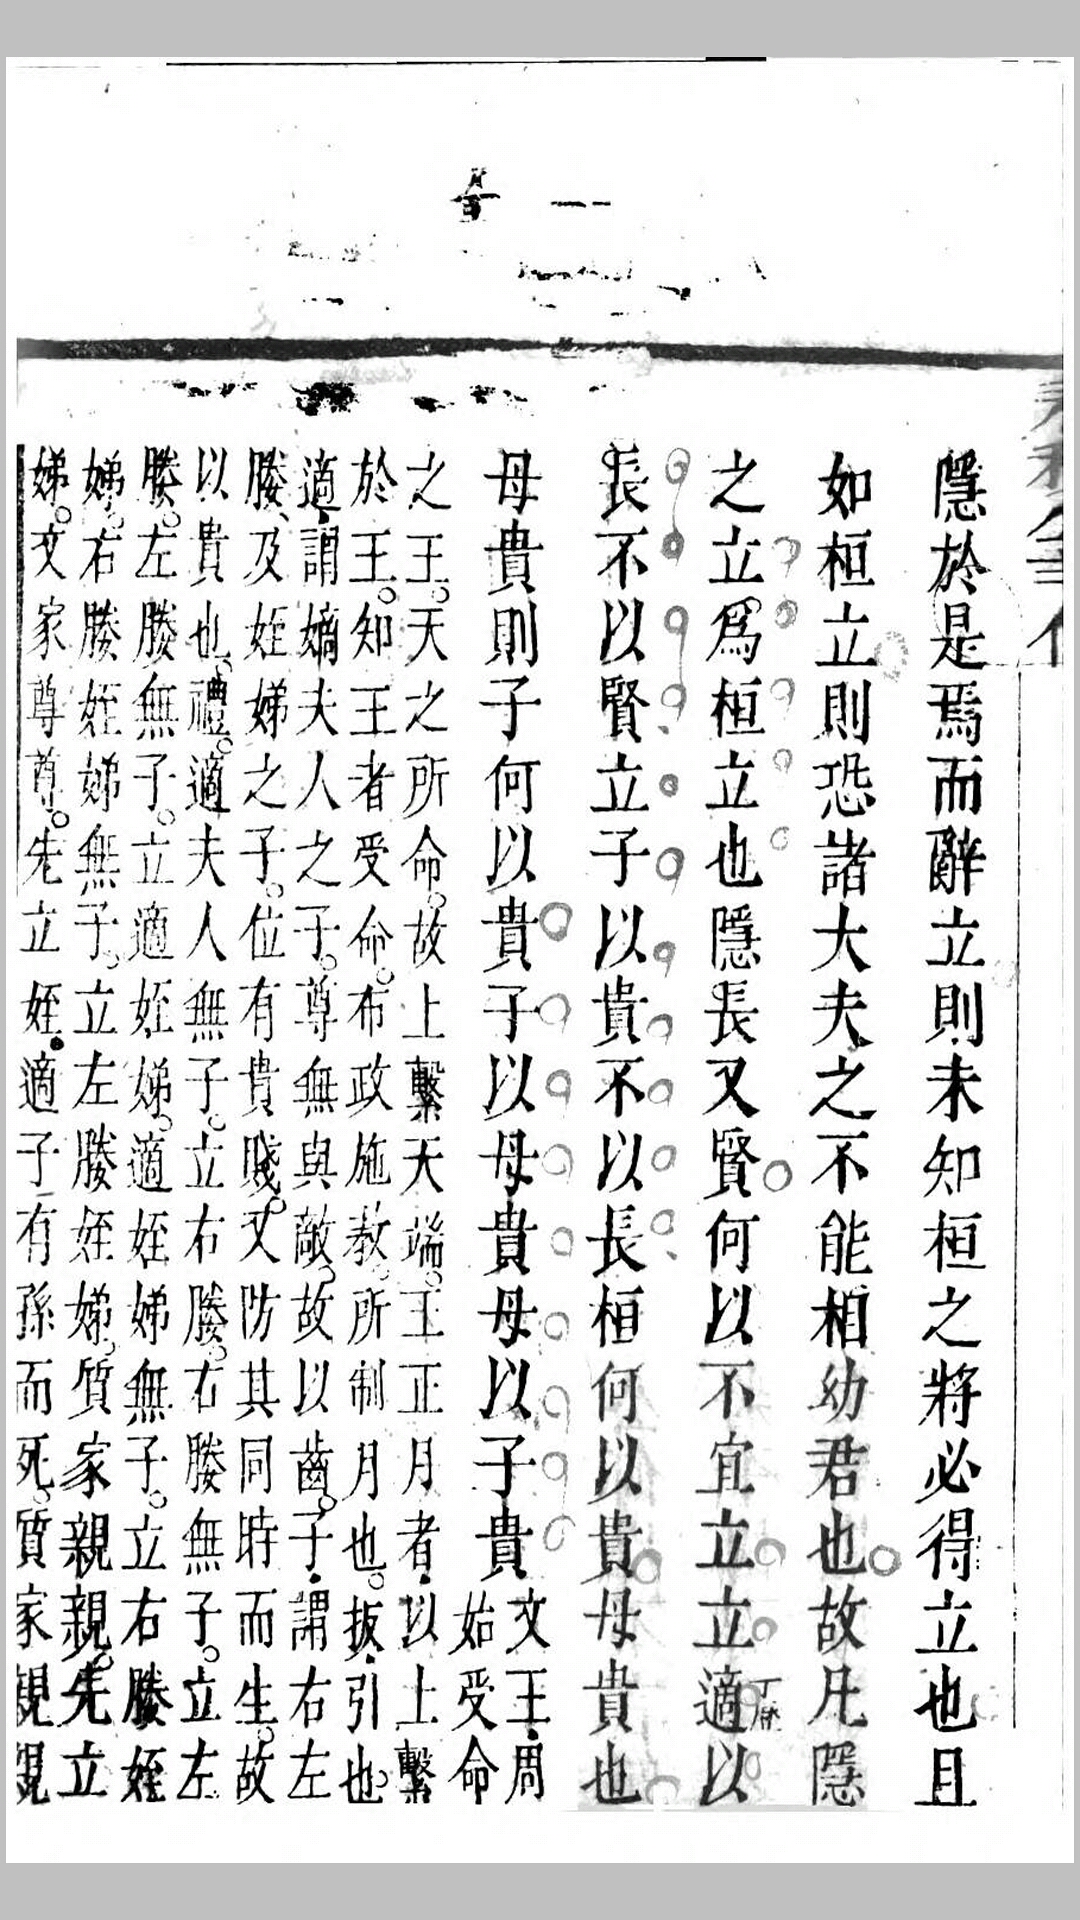 隱於是焉而辭立則未知桓之將必得立也且
如桓立則恐諸大夫之不能相幼君也故凡隱
之立爲桓立也隱長又賢何以不宜立立適以
長不以賢立子以貴不以長桓何以貴母貴也
母貴則子何以貴子以母貴母以子貴
文王周
始受命
之王。天之所命。故上繫天端。王正月者以上繫
於王。知王者受命。布政施教。所制月也。扳引也
適謂嫡夫人之子。尊無與敵。故以齒。子謂右左
媵、及姪娣之子。位有貴賤。又防其同時而生。故
以貴也。禮。適夫人無子。立右媵。右媵無子。立左
媵。左媵無子。立適姪娣。適姪娣無子。立右媵姪
娣。右媵姪娣無子。立左媵姪娣。質家親親。先立
娣。文家尊尊。先立姪。適子有孫而死。質家親親